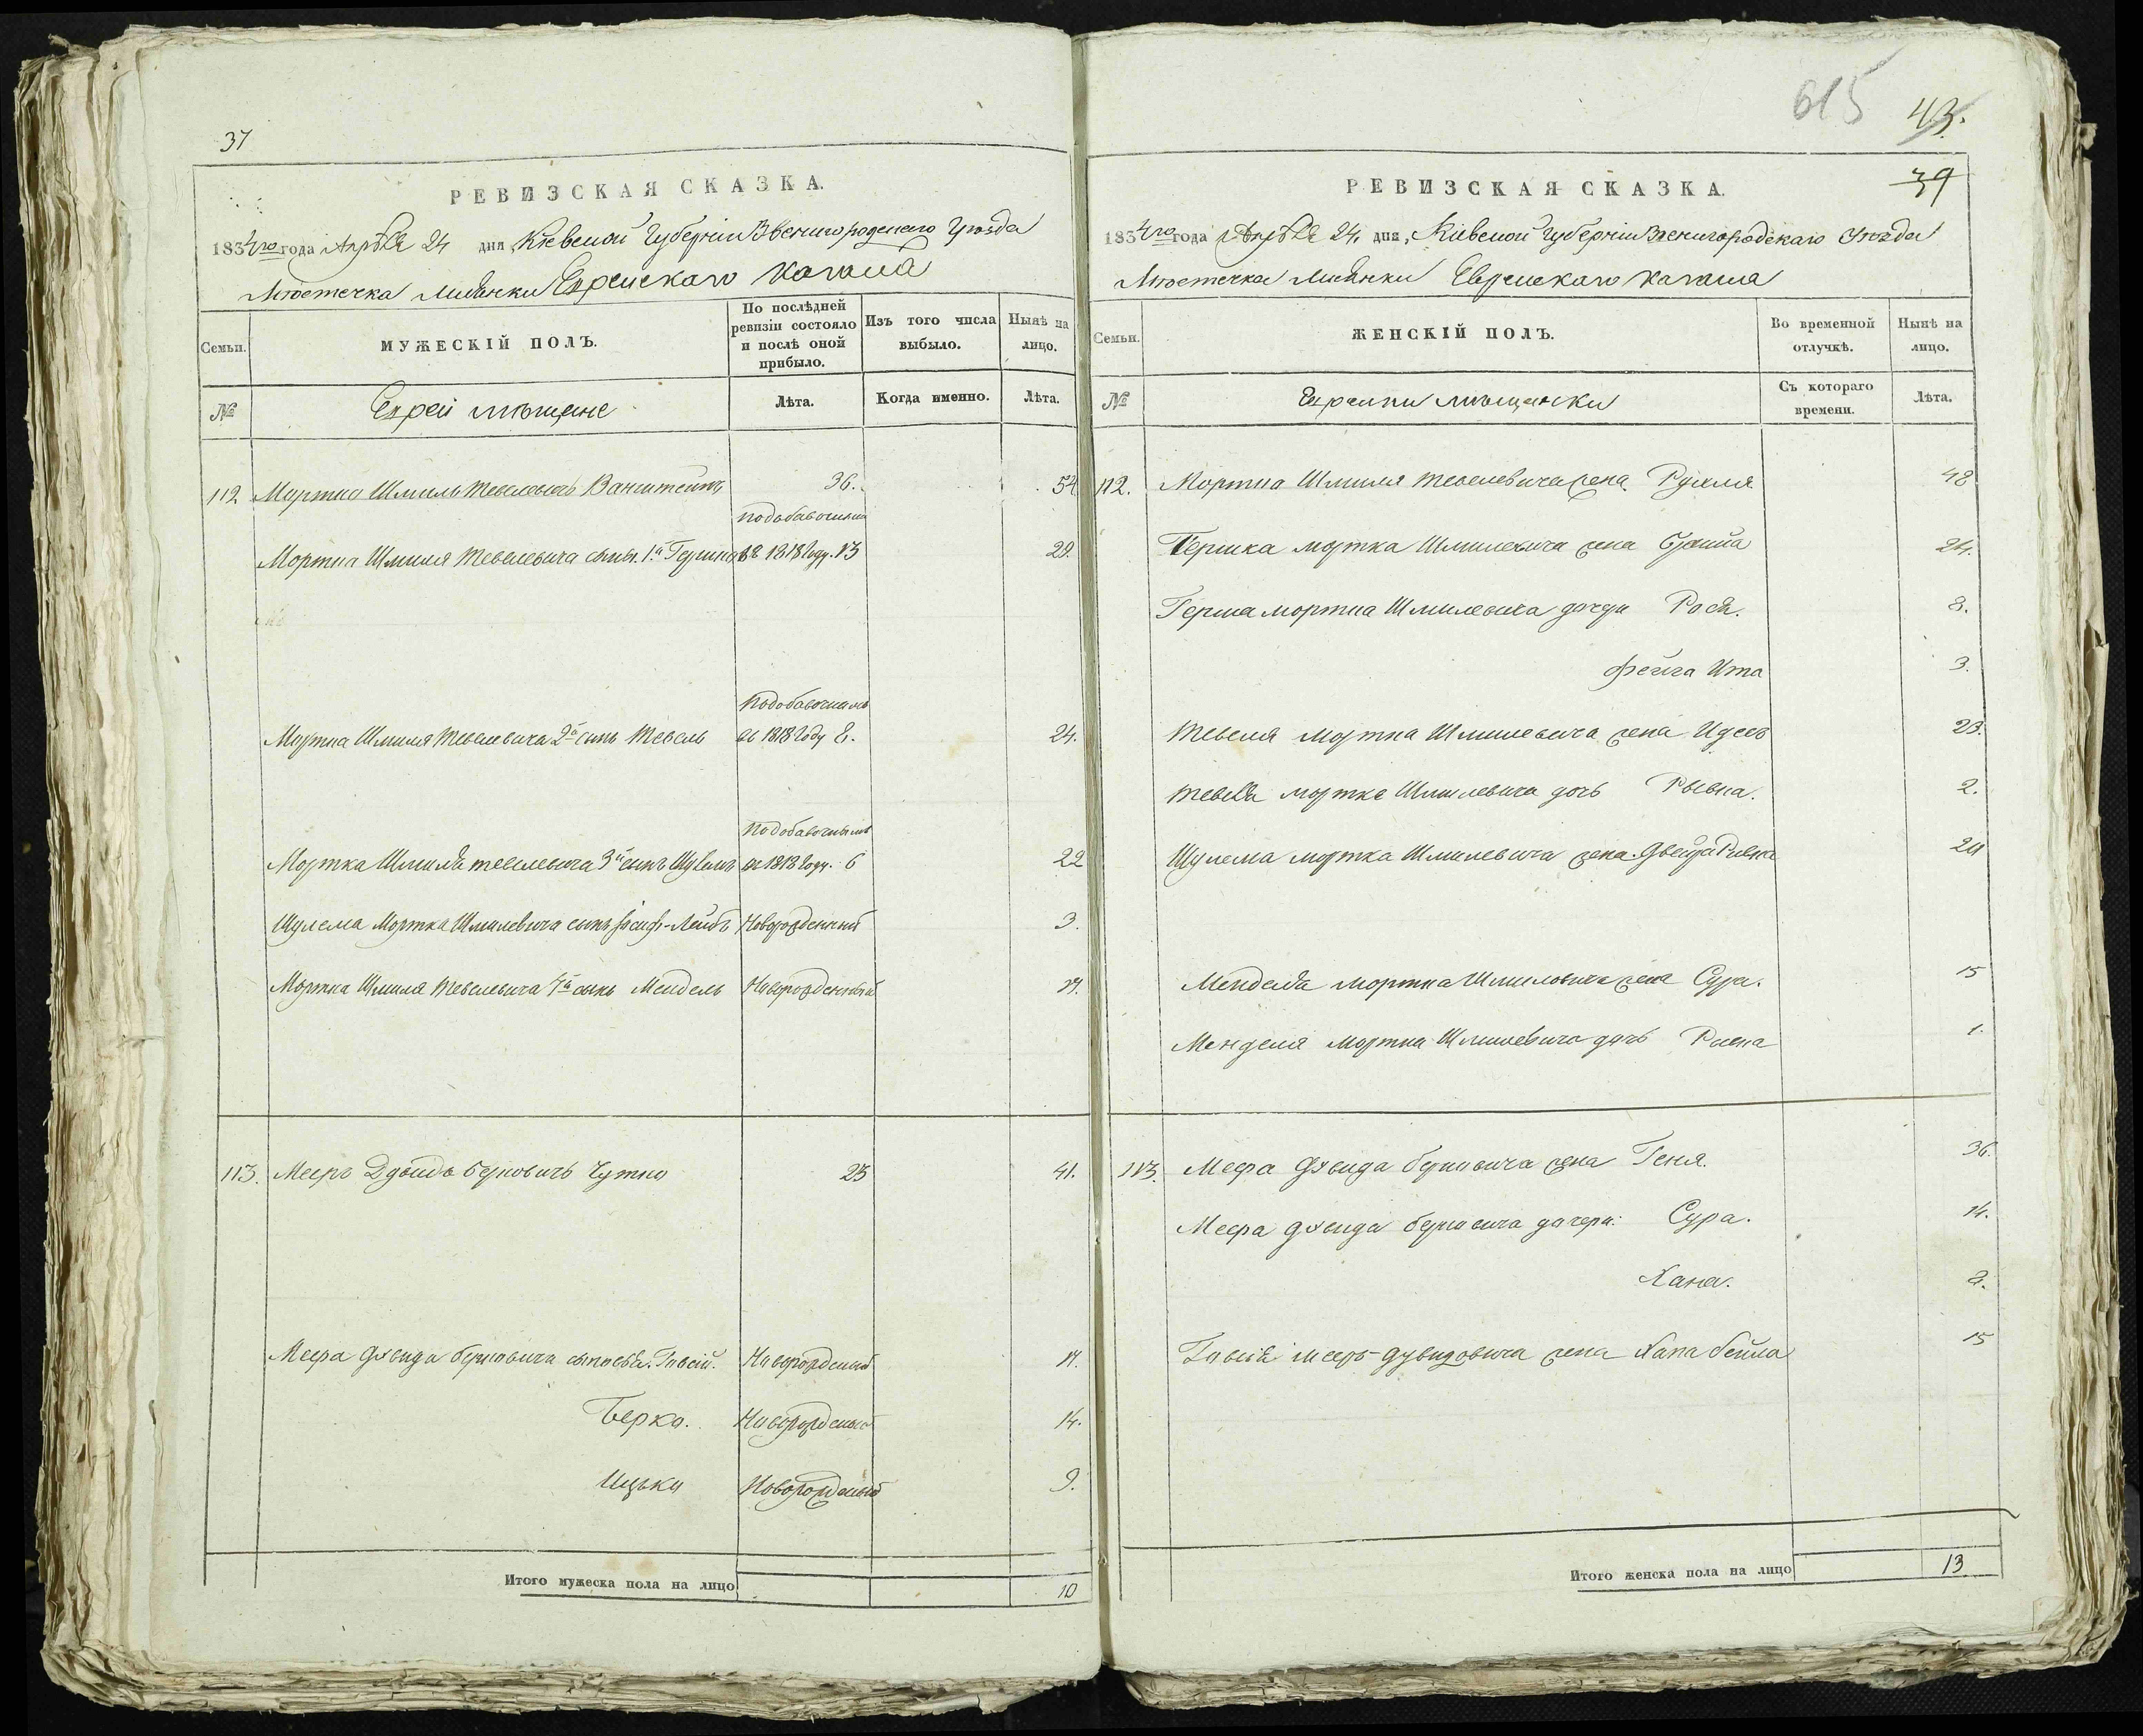 37
РЕВИЗСКАЯ СКАЗКА.
1834го года Апреля 24 дня, Кіевской Губерніи Звенигородскаго Уѣзда
Мѣстечка Лисянки Еврейскаго Кагала
Семьи.
МУЖЕСКІЙ ПОЛЪ.
По послѣдней ревизіи состояло и послѣ оной прибыло.
Изъ того числа выбыло.
Нынѣ на лицо.
№
Еврей мѣщане
Лѣта.
Когда именно.
Лѣта.
112 Мортко Шмиль Тевелевичъ 36. 54
подобавочнымъ
Мортка Шмиля Тевелевича сынъ. 1й Гершко въ 1818 году. 13 29.
подобавочнымъ
Мортка Шмиля Тевелевича 2й сынъ Тевель въ 1818 году 8. 24.
подобавочнымъ
Мортка Шмиля Тевелевича 3й сынъ Шулемъ въ 1818 году. 6 22
Шулема Мортка Шмилевича сынъ Іосифъ-Лейбъ Новорожденный 3.
Мортка Шмиля Тевелевича 4й сынъ Мендель Новорожденный
113. Мееръ Дувидъ Берковичъ 25 41.
Меера Дувида Берковича сыновья. Новорожденный
Берко. Новорожденный 14.
Ицько Новорожденный 9.
Итого мужеска пола на лицо 10
615
43.
39
РЕВИЗСКАЯ СКАЗКА.
1834го года Апреля 24. дня, Кіевской Губерніи Звенигородскаго Уѣзда
Мѣстечка Лисянки Еврейскаго Кагала
Семьи.
ЖЕНСКІЙ ПОЛЪ.
Во временной отлучкѣ.
Нынѣ на лицо.
№
Еврейки мѣщанки
Съ котораго времени.
Лѣта.
112. Мортка Шмиля Тевелевича жена Рухля 48
Гершка Мортка Шмилевича жена 24.
Герша Мортка Шмилевича дочери Рося. 8.
Фейга Ита 3.
Тевеля Мортка Шмилевича жена 23.
Тевеля Мортка Шмилевича дочь Рывка. 2.
Шулема Мортка Шмилевича жена Двейра Ривка 20
Менделя Мортка Шмилевича жена Сура. 15
Менделя Мортка Шмилевича дочь 1.
113. Меера Дувида Берковича жена Геня. 36.
Меера Дувида Берковича дочери: Сура. 14.
Хана. 2.
Меръ-Дувидовича жена Хана Бейла 15
Итого женска пола на лицо 13